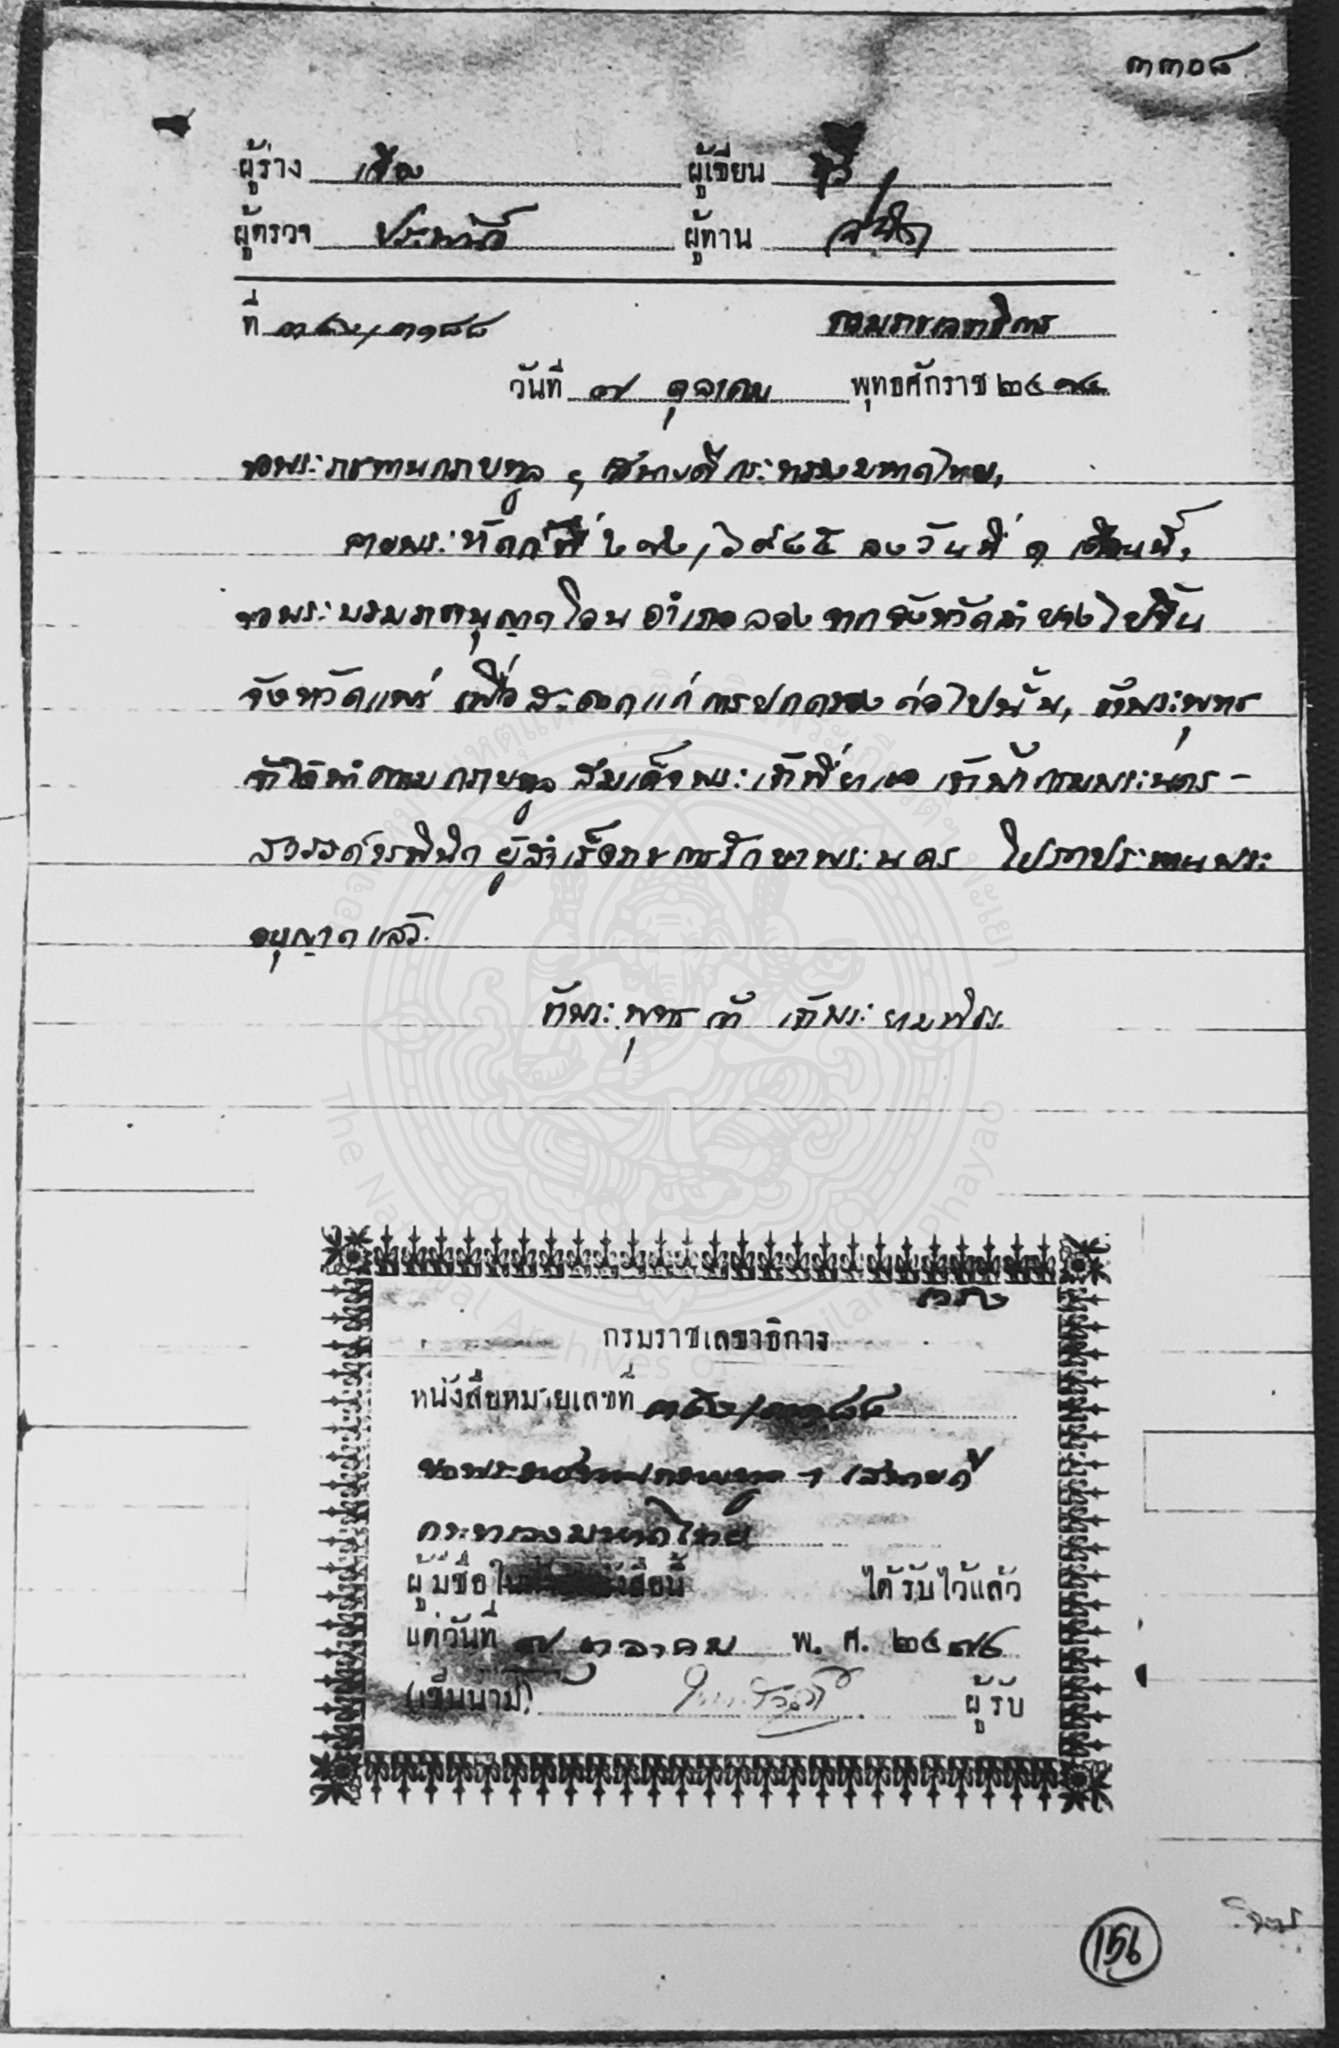 ๓๓๐๘
ผู้ร่าง เชื้อ ผู้เขียน
ผู้ตรวจ ประพาฬ ผู้ทาน
ที่ ๓๕/๓๑๔๔ กรมราชเลขาธิการ
วันที่ ๗ ตุลาคม พุทธศักราช ๒๔๗๔
ขอพระราชทานกราบทูล ฯ เสนาบดีกระทรวงมหาดไทย,
ลายพระหัตถ์ที่ ลงวันที่ ๑ เดือนนี้,
ขอพระบรมราชานุญาตโอนอำเภอลองจากจังหวัดลำปางไปขึ้น
จังหวัดแพร่ เพื่อสะดวกแก่การปกครองต่อไปนั้น, ข้าพระพุทธ
เจ้าได้นำความกราบทูล สมเด็จพระเจ้าพี่ยาเธอ เจ้าฟ้ากรมพระนคร-
สวรรค์วรพินิต ผู้สำเร็จราชการรักษาพระนคร โปรดประทานพระ
อนุญาตแล้ว.
ข้าพระพุทธเจ้า
หอจดหมายเหตุแห่งชาติเฉลิมพระเกียรติฯ พะเยา
The National Archives of Thailand Phayao
กรมราชเลขาธิการ
หนังสือหมายเลขที่
ขอพระราชทานกราบทูล ฯ เสนาบดี
กระทรวงมหาดไทย
ผู้มีชื่อใน หนังสือนี้ ได้รับไว้แล้ว
แต่วันที่ ๗ ตุลาคม พ. ศ. ๒๔๗๔
(เซ็นนาม) ผู้รับ
156